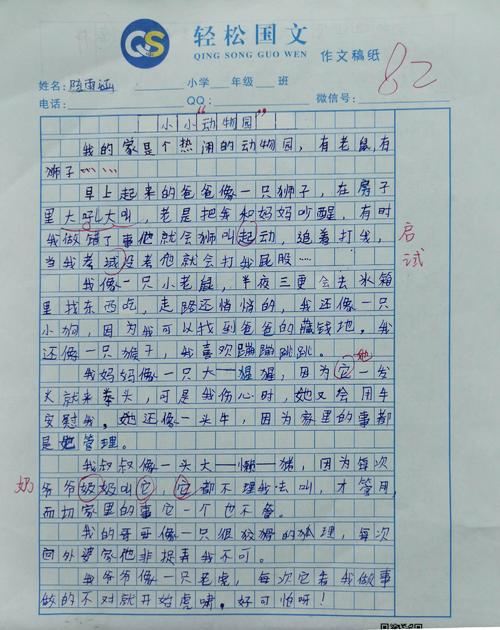 轻松国文
QING SONG GUO WEN
作文稿纸
82
姓名: 小学 年级 班
电话: QQ: 微信号:
小小“动物园”
我的家是个热闹的动物园,有老鼠,有
狮子……
早上起来的爸爸像一只狮子,在房子
里大吼大叫,老是把我和妈妈吵醒,有时
我做错了事他就会狮叫起动,追着打我,
当我考试没考他就会打我屁股……
启
试
我像一只小老鼠,半夜三更会去冰箱
里找东西吃,走路还悄悄的,我还像一只
小狗,因为我可以找到爸爸的藏钱地。我
还像一只猴子,我喜欢蹦蹦跳跳。
我妈妈像一只大——猩猩,因为它一发
她
火就来拳头,可是我伤心时,她又会用手
安慰我。她还像一头牛,因为家里的事都
是她管理。
我叔叔像一头大——懒——猪,因为每次
奶
爷爷奶奶叫它,它都不理我去叫,才管用,
而切家里的事它一个也不管。
我的哥哥像一只很狡猾的狐理,每次
回外婆家他非捉弄我不可。
我爷爷像一只老虎,每次它看我做事
做的不对就开始虎啸。好可怕呀!